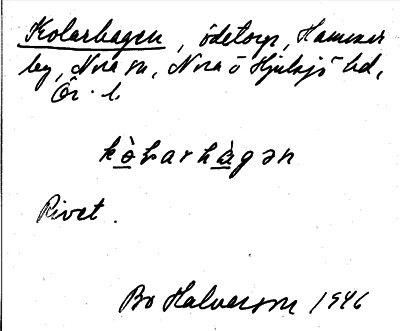 Kolarhagen, ödetorp, Hammar
by, Nora sn, Nora o Hjulsjö bd,
Ör. l.
kò̲ɫarhà̲gən
Rivet.
Bo Halvarson 1946